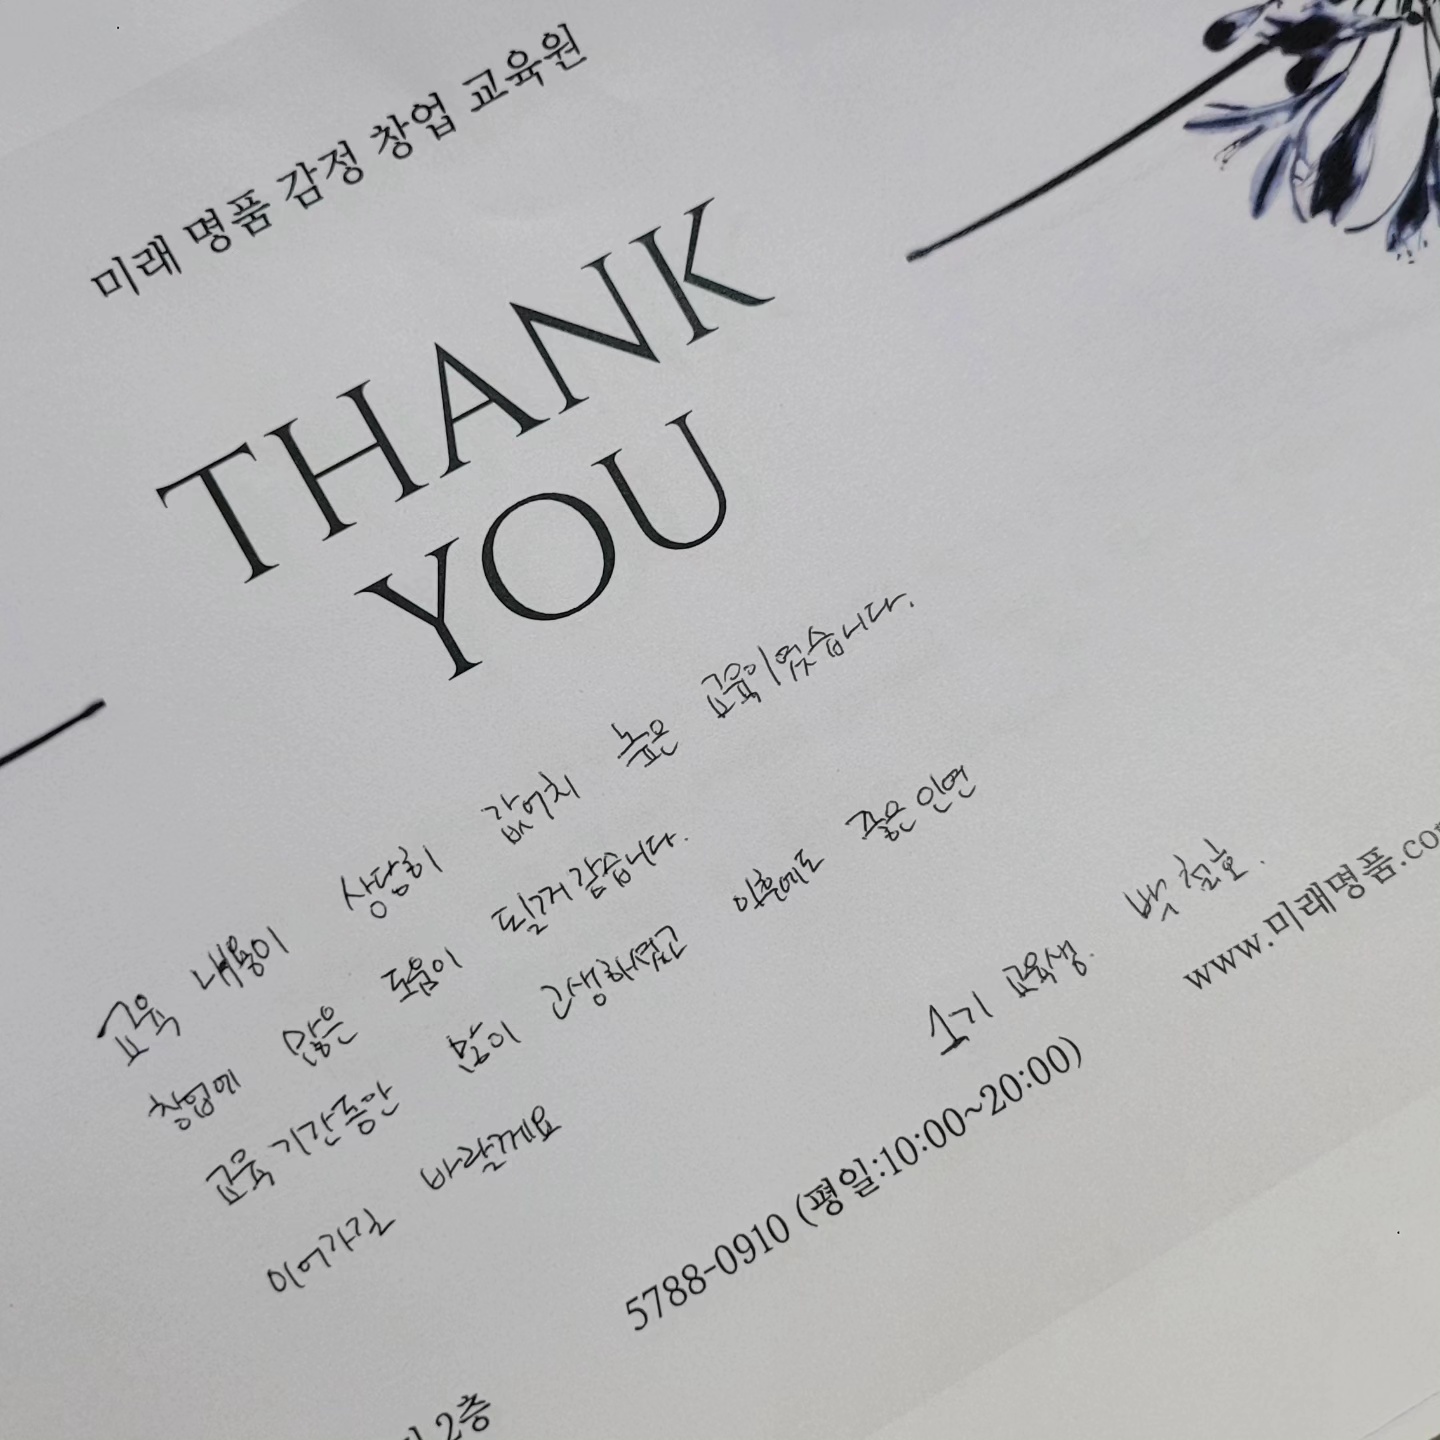 미래 명품 감정 창업 교육원
THANK
YOU
교육 내용이 상당히 값어치 높은 교육이였습니다.
창업에 많은 도움이 될거 같습니다.
교육 기간동안 많이 고생하셨고 이후에도 좋은 인연
이어가길 바랄께요
1기 교육생. 백철호.
www.미래명품.co
5788-0910 (평일:10:00~20:00)
2층